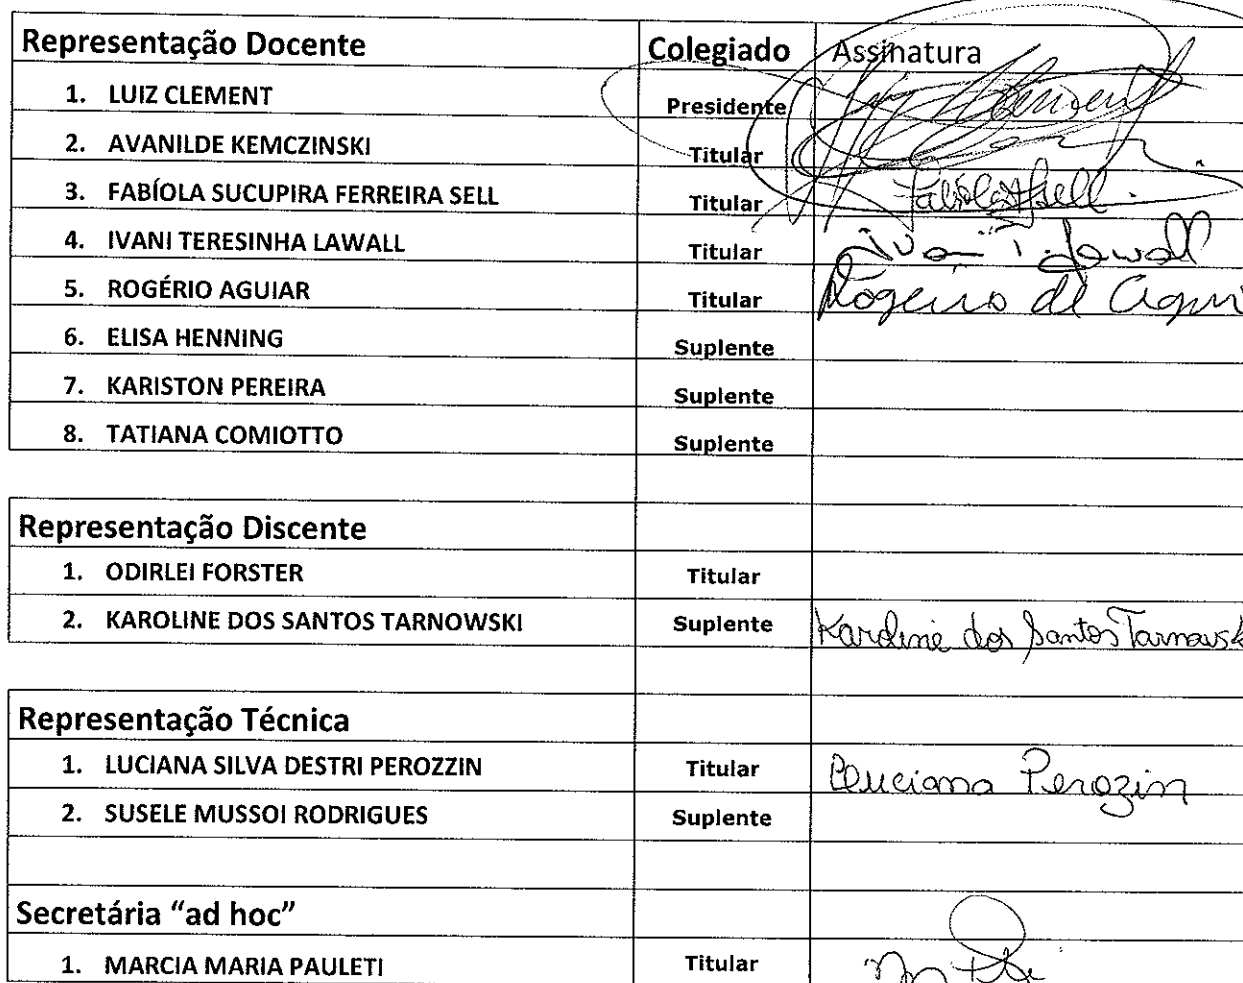 Representação Docente Colegiado Assinatura
1. LUIZ CLEMENT Presidente
2. AVANILDE KEMCZINSKI Titular
3. FABÍOLA SUCUPIRA FERREIRA SELL Titular
4. IVANI TERESINHA LAWALL Titular Ivani T. Lawall
5. ROGÉRIO AGUIAR Titular Rogério de Agui
6. ELISA HENNING Suplente
7. KARISTON PEREIRA Suplente
8. TATIANA COMIOTTO Suplente
Representação Discente
1. ODIRLEI FORSTER Titular
2. KAROLINE DOS SANTOS TARNOWSKI Suplente Karoline dos Santos Tarnowsk
Representação Técnica
1. LUCIANA SILVA DESTRI PEROZZIN Titular Luciana Perozin
2. SUSELE MUSSOI RODRIGUES Suplente
Secretária “ad hoc”
1. MARCIA MARIA PAULETI Titular